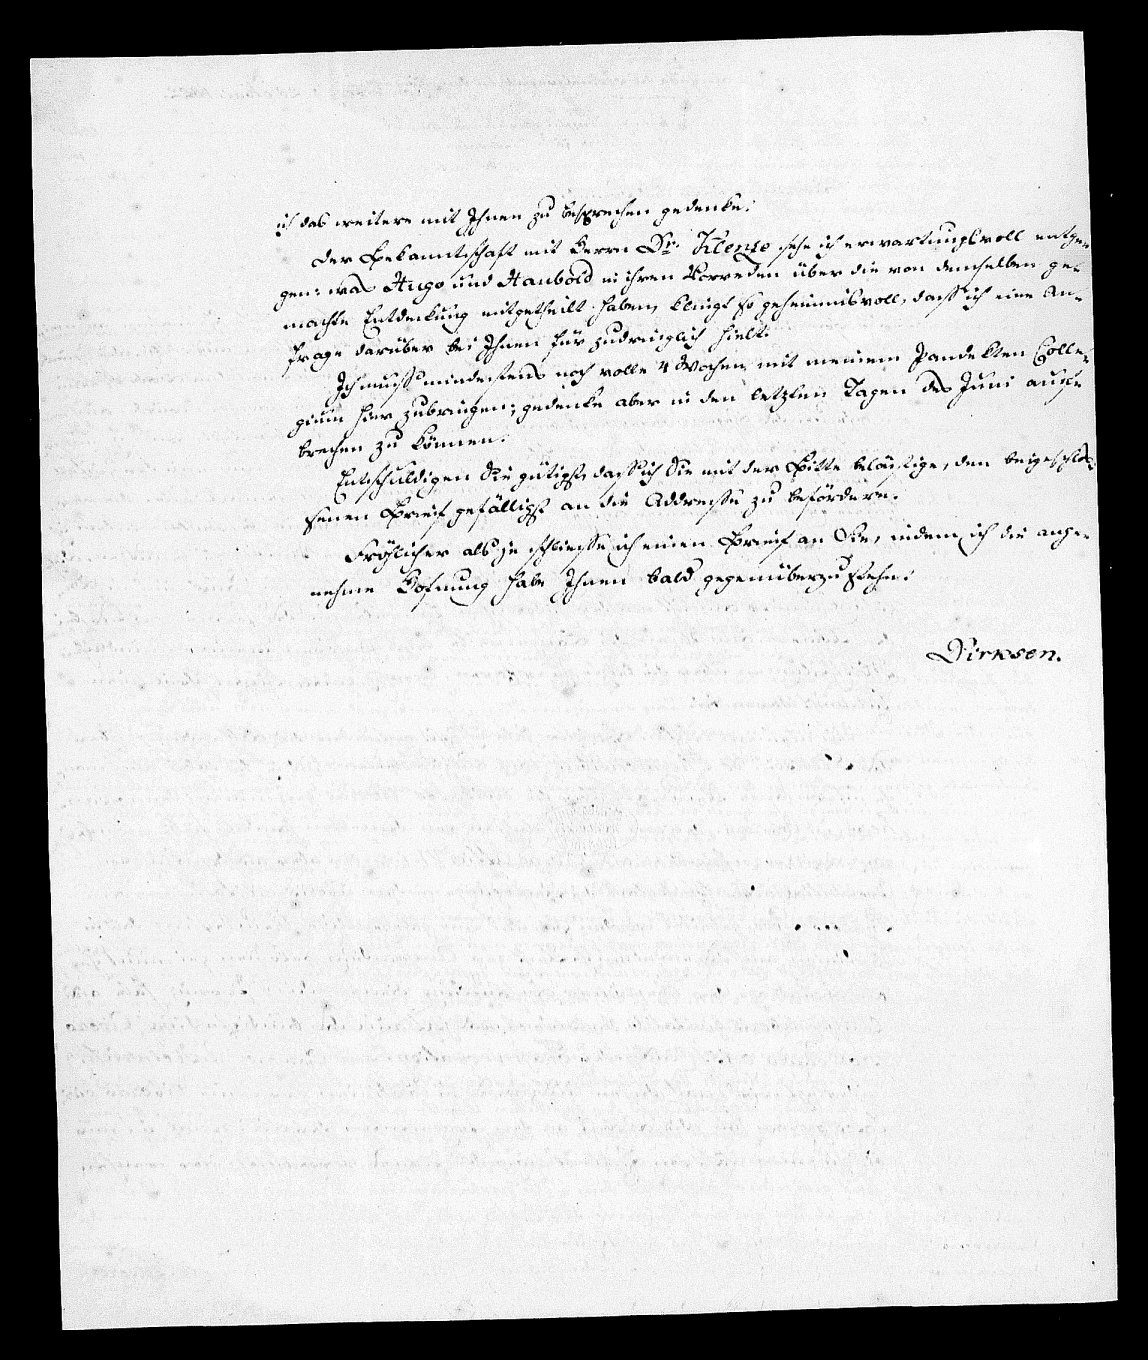 ich das weitere mit Ihnen zu besprechen gedenke.
Der Bekanntschaft mit Herrn Dr. Klenze sehe ich erwartungsvoll entge-
gen: was Hugo und Haubold in ihren Vorreden über die von demselben ge-
machte Entdeckung mitgetheilt haben, klingt so geheimnisvoll, dass ich eine An-
frage darüber bei Ihnen für zudringlich hielt.
Ich muss mindestens noch volle 4 Wochen mit meinem Pandekten Colle-
gium hier zubringen; gedenke aber in den letzten Tagen des Juni aufzu-
brechen zu können.
Entschuldigen Sie gütigst, dass ich Sie mit der Bitte belästige, den beigeschlos-
senen Brief gefälligst an die Addresse zu befördern.
Fröhlicher als je schliesse ich einen Brief an Sie, indem ich die ange-
nehme Hofnung habe Ihnen bald gegenüberzustehn.
Dirksen.